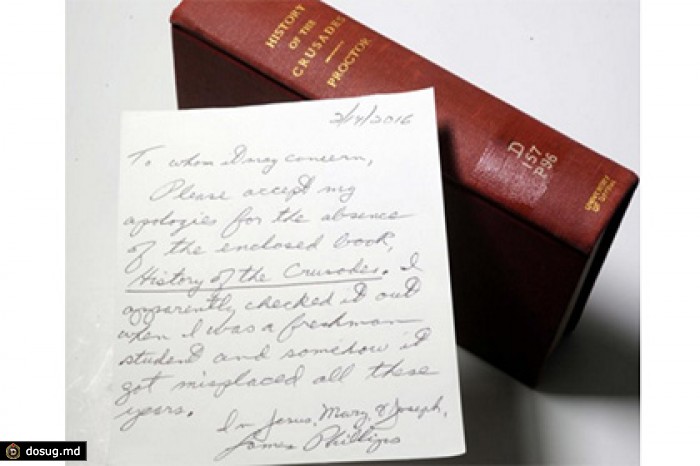 HISTORY
OF THE
CRUSADES
PROCTOR
D
157
P96
UNIVERSITY
OF DAYTON
2/14/2016
To whom it may concern,
Please accept my
apologies for the absence
of the enclosed book,
History of the Crusades. I
apparently checked it out
when I was a freshman
student and somehow it
got misplaced all these
years.
In Jesus, Mary, & Joseph,
James Phillips
dosug.md